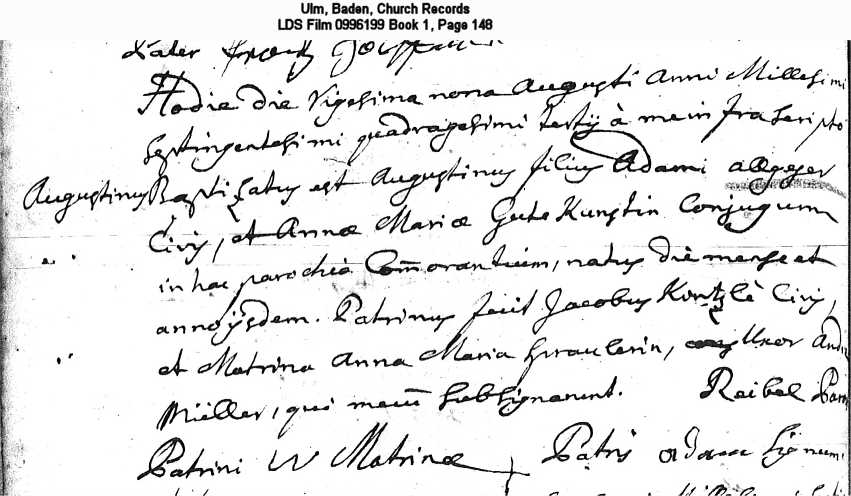 Ulm, Baden, Church Records
LDS Film 0996199 Book 1, Page 148
Pater
Hodie die Vigesima nona Augusti Anni Millesimi
Septingentesimi quadragesimi tertij à me infra scripto
Augustinus Baptisatus est Augustinus filius Adami allgeyer
Civis, et Annæ Mariæ Gutekunstin Conjugum
in hac parochia Com̄orantium, natus die mense et
anno ijsdem. Patrinus fuit Jacobus Civis,
et Matrina Anna Maria Uxor
Müller, qui mecū subsignarunt. Reibel
Patrini W Matrinæ + Patris adam signum